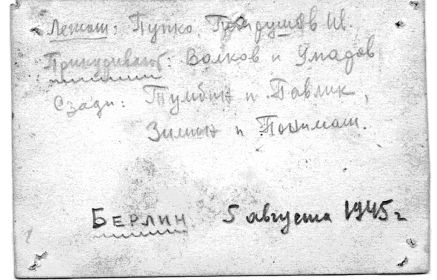 Лежат: Пупко, Пондрушов И.
Прикуривают: Волков и Умадов
Сзади: Тумбин и Павлик,
Зимин и Понимаш.
БЕРЛИН 5 августа 1945 г